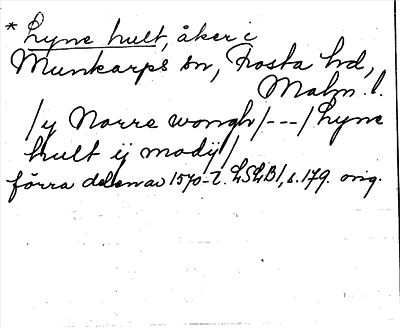 * Lyne hult, åker i
Munkarps sn, Frosta hd,
Malm. l.
/y Norre wongh/---/Lyne
hult ij modij/
förra delen av 1570-t. LSLB1, s. 179. orig.